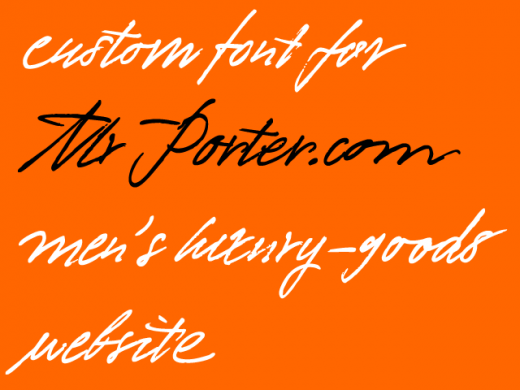 custom font for
Mr Porter.com
men's luxury-goods
website